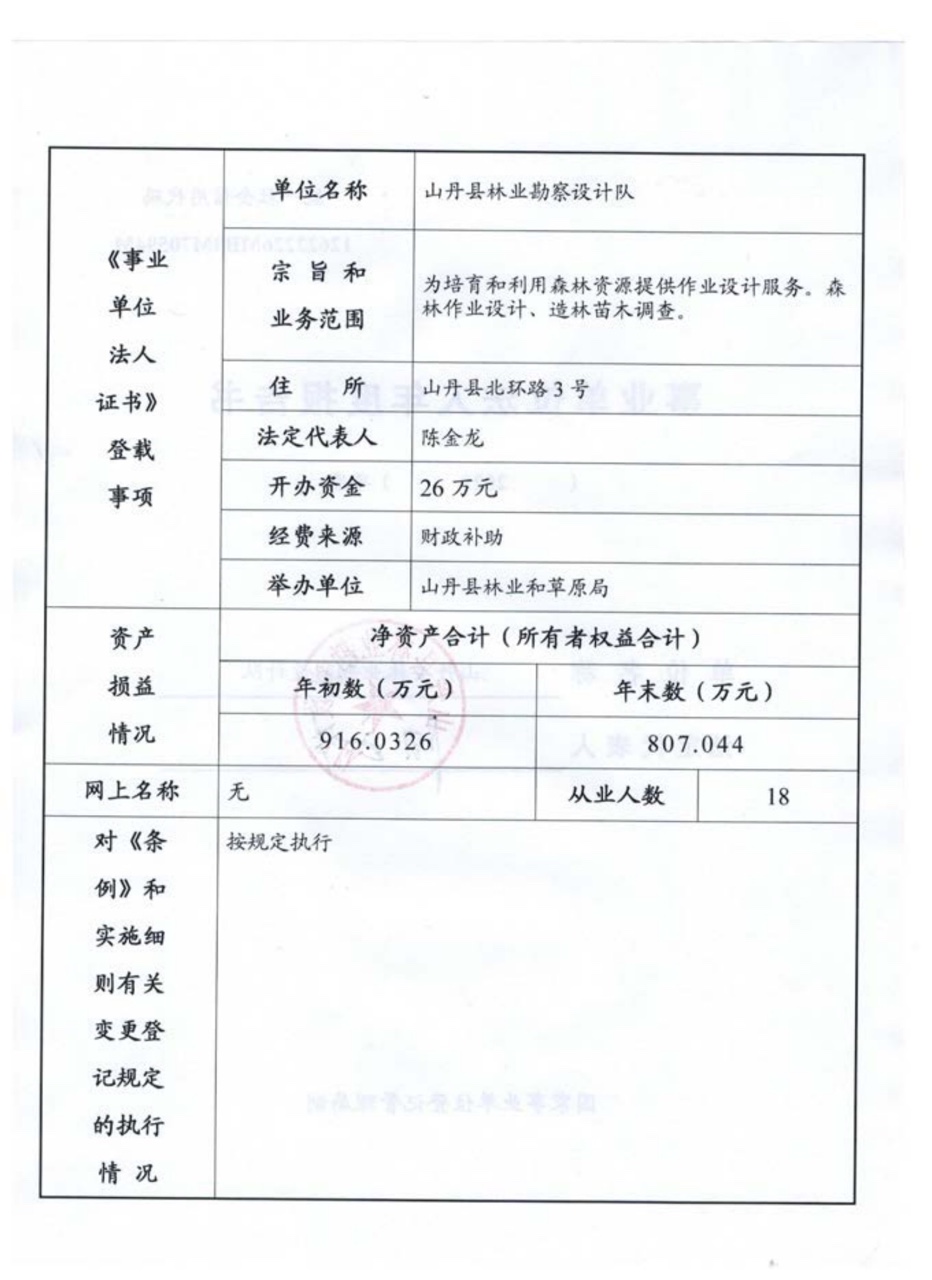 《事业
单位
法人
证书》
登载
事项
单位名称 山丹县林业勘察设计队
宗旨和
业务范围
为培育和利用森林资源提供作业设计服务。森
林作业设计、造林苗木调查。
住 所 山丹县北环路3号
法定代表人 陈金龙
开办资金 26万元
经费来源 财政补助
举办单位 山丹县林业和草原局
资产
损益
情况
净资产合计（所有者权益合计）
年初数（万元） 年末数（万元）
916.0326 807.044
网上名称 无 从业人数 18
对《条
例》和
实施细
则有关
变更登
记规定
的执行
情 况
按规定执行